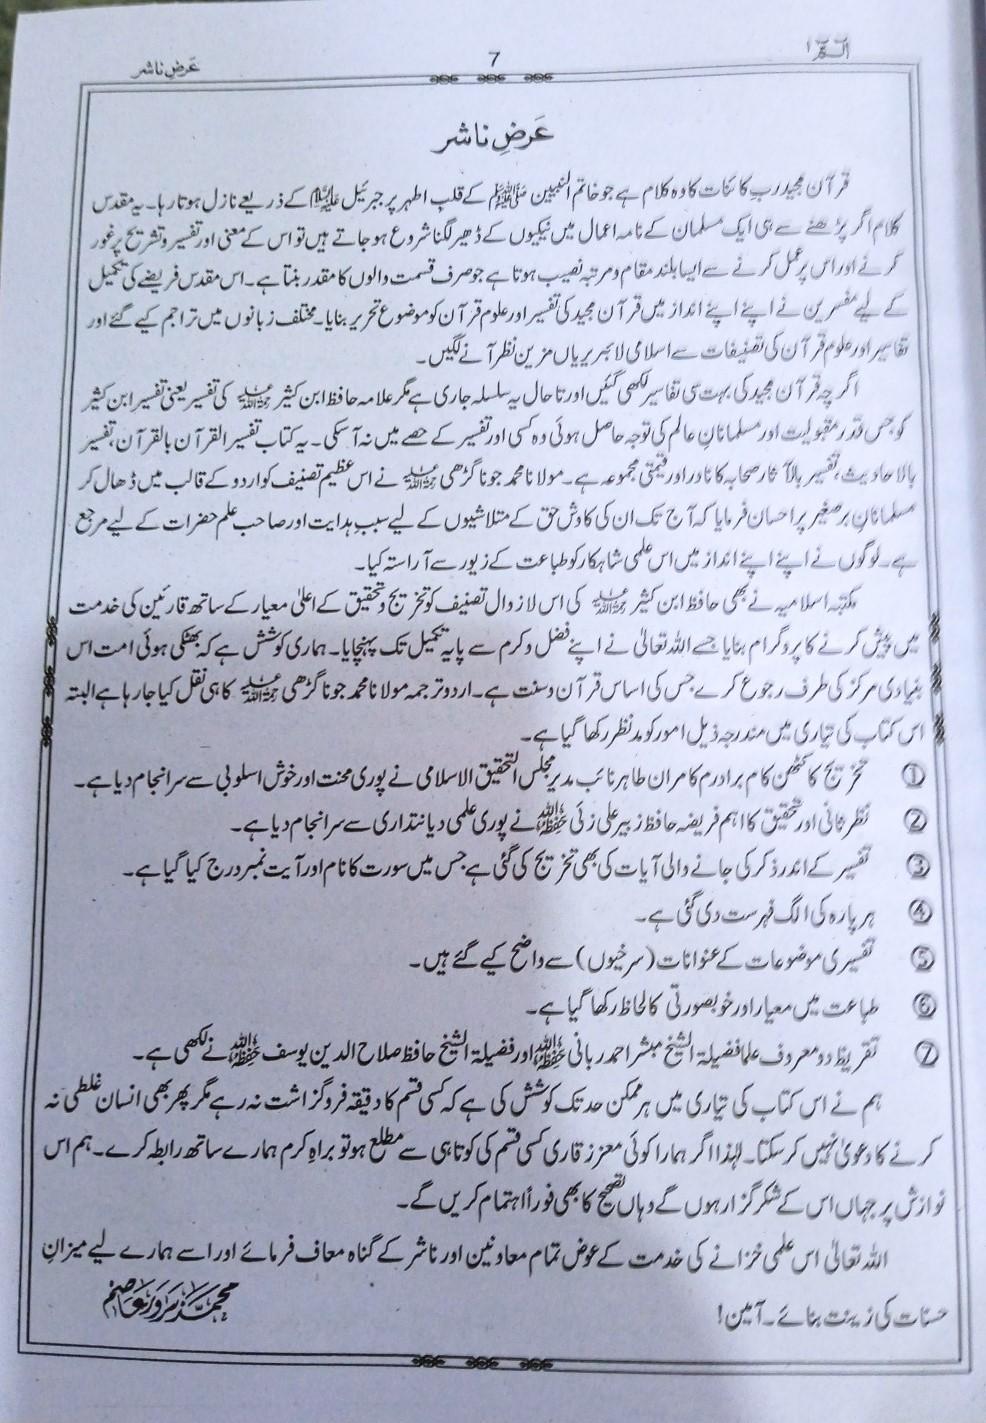 الٓمّٓ ۱
7
عَرضِ ناشر
عَرضِ ناشر
قرآن مجید ربِ کائنات کا وہ کلام ہے جو خاتم النبیین ﷺ کے قلب اطہر پر جبرئیل علیہ السلام کے ذریعے نازل ہوتا رہا۔ یہ مقدس
کلام اگر پڑھنے سے ہی ایک مسلمان کے نامہ اعمال میں نیکیوں کے ڈھیر لگنا شروع ہو جاتے ہیں تو اس کے معنی اور تفسیر و تشریح پر غور
کرنے اور اس پر عمل کرنے سے ایسا بلند مقام و مرتبہ نصیب ہوتا ہے جو صرف قسمت والوں کا مقدر بنتا ہے۔ اس مقدس فریضے کی تکمیل
کے لیے مفسرین نے اپنے اپنے انداز میں قرآن مجید کی تفسیر اور علوم قرآن کو موضوع تحریر بنایا۔ مختلف زبانوں میں تراجم کیے گئے اور
تفاسیر اور علوم قرآن کی تصنیفات سے اسلامی لائبریریاں مزین نظر آنے لگیں۔
اگرچہ قرآن مجید کی بہت سی تفاسیر لکھی گئیں اور تا حال یہ سلسلہ جاری ہے مگر علامہ حافظ ابن کثیر رحمہ اللہ کی تفسیر یعنی تفسیر ابن کثیر
کو جس قدر مقبولیت اور مسلمانانِ عالم کی توجہ حاصل ہوئی وہ کسی اور تفسیر کے حصے میں نہ آسکی۔ یہ کتاب تفسیر القرآن بالقرآن، تفسیر
بالاحادیث، تفسیر بالآثار صحابہ کا نادر اور قیمتی مجموعہ ہے۔ مولانا محمد جوناگڑھی رحمہ اللہ نے اس عظیم تصنیف کو اردو کے قالب میں ڈھال کر
مسلمانانِ برصغیر پر احسان فرمایا کہ آج تک ان کی کاوش حق کے متلاشیوں کے لیے سببِ ہدایت اور صاحب علم حضرات کے لیے مرجع
ہے۔ لوگوں نے اپنے اپنے انداز میں اس علمی شاہکار کو طباعت کے زیور سے آراستہ کیا۔
مکتبہ اسلامیہ نے بھی حافظ ابن کثیر رحمہ اللہ کی اس لازوال تصنیف کو تخریج و تحقیق کے اعلیٰ معیار کے ساتھ قارئین کی خدمت
میں پیش کرنے کا پروگرام بنایا جسے اللہ تعالیٰ نے اپنے فضل و کرم سے پایہ تکمیل تک پہنچایا۔ ہماری کوشش ہے کہ بھٹکی ہوئی امت اس
بنیادی مرکز کی طرف رجوع کرے جس کی اساس قرآن و سنت ہے۔ اردو ترجمہ مولانا محمد جوناگڑھی رحمہ اللہ کا ہی نقل کیا جا رہا ہے البتہ
اس کتاب کی تیاری میں مندرجہ ذیل امور کو مدنظر رکھا گیا ہے۔
① تخریج کا کٹھن کام برادرم کامران طاہر نائب مدیر مجلس التحقیق الاسلامی نے پوری محنت اور خوش اسلوبی سے سرانجام دیا ہے۔
② نظرثانی اور تحقیق کا اہم فریضہ حافظ زبیر علی زئی حفظہ اللہ نے پوری علمی دیانتداری سے سرانجام دیا ہے۔
③ تفسیر کے اندر ذکر کی جانے والی آیات کی بھی تخریج کی گئی ہے جس میں سورت کا نام اور آیت نمبر درج کیا گیا ہے۔
④ ہر پارہ کی الگ فہرست دی گئی ہے۔
⑤ تفسیری موضوعات کے عنوانات (سرخیوں) سے واضح کیے گئے ہیں۔
⑥ طباعت میں معیار اور خوبصورتی کا لحاظ رکھا گیا ہے۔
⑦ تقریظ دو معروف علما فضیلۃ الشیخ مبشر احمد ربانی حفظہ اللہ اور فضیلۃ الشیخ حافظ صلاح الدین یوسف حفظہ اللہ نے لکھی ہے۔
ہم نے اس کتاب کی تیاری میں ہر ممکن حد تک کوشش کی ہے کہ کسی قسم کا دقیقہ فروگزاشت نہ رہے مگر پھر بھی انسان غلطی نہ
کرنے کا دعویٰ نہیں کر سکتا۔ لہٰذا اگر ہمارا کوئی معزز قاری کسی قسم کی کوتاہی سے مطلع ہو تو براہِ کرم ہمارے ساتھ رابطہ کرے۔ ہم اس
نوازش پر جہاں اس کے شکر گزار ہوں گے وہاں تصحیح کا بھی فوراً اہتمام کریں گے۔
اللہ تعالیٰ اس علمی خزانے کی خدمت کے عوض تمام معاونین اور ناشر کے گناہ معاف فرمائے اور اسے ہمارے لیے میزانِ
حسنات کی زینت بنائے۔ آمین!
محمد سرور عاصم